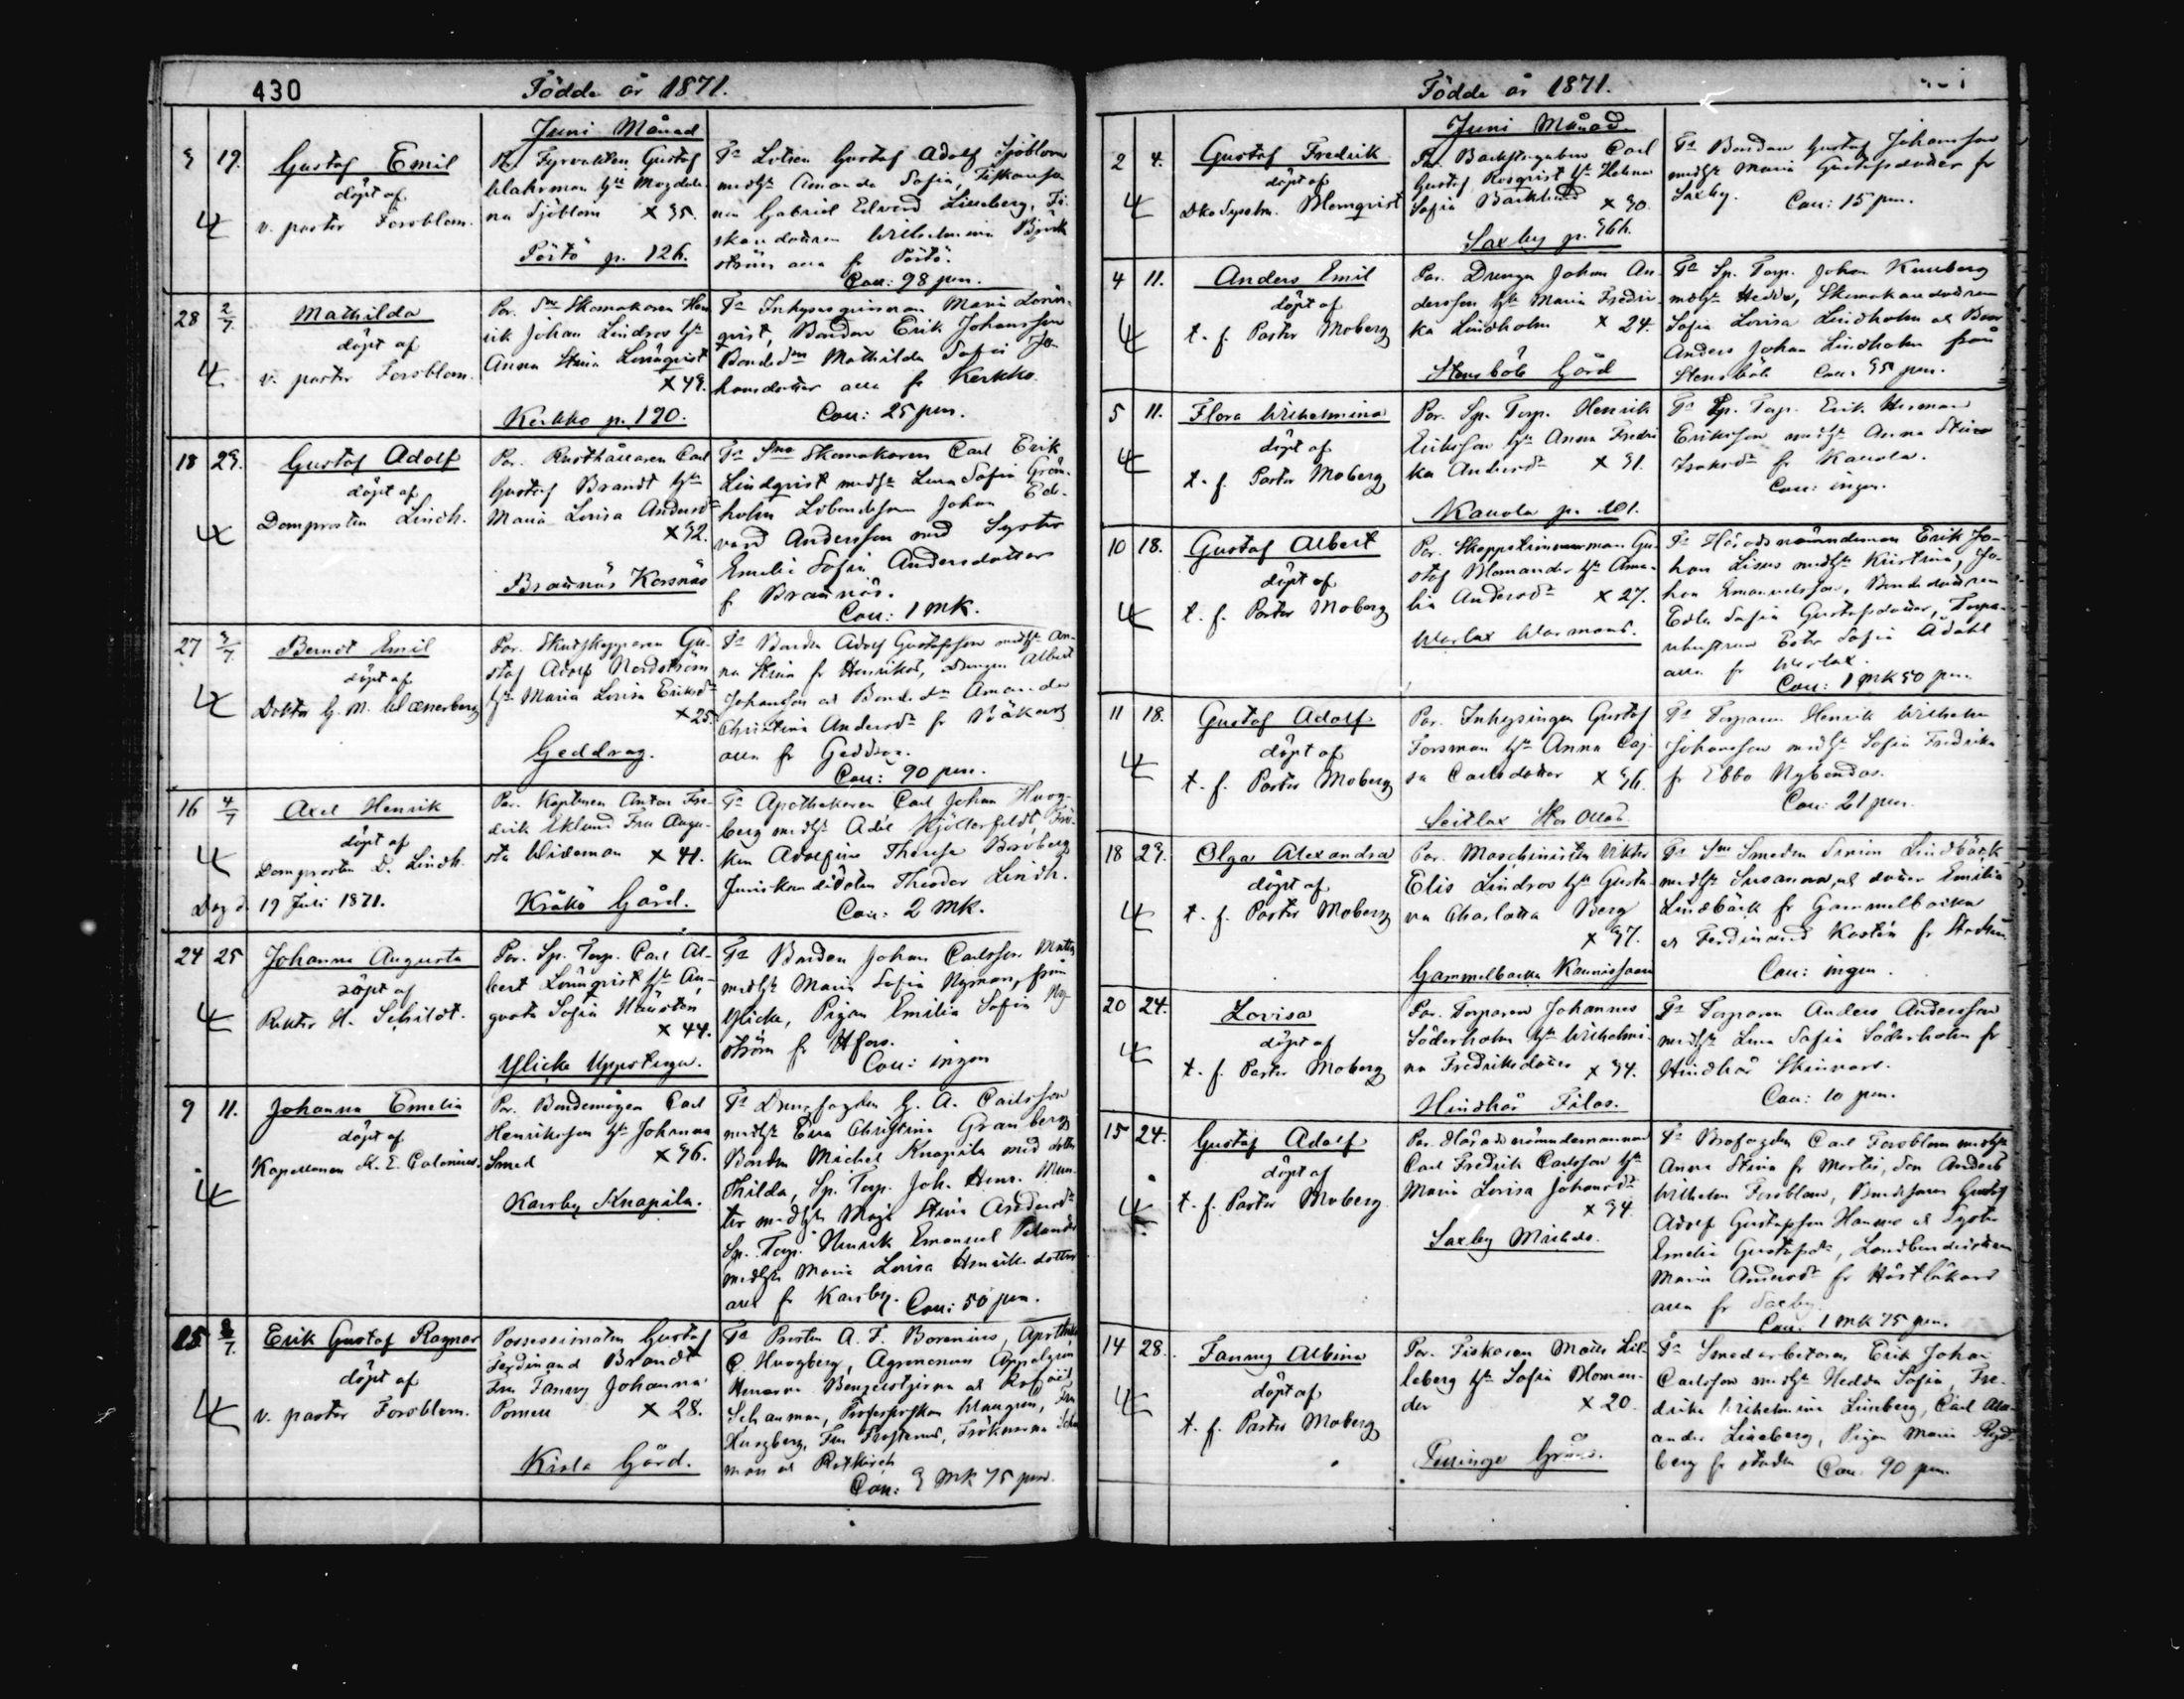 430
Födde år 1871.
Juni Månad
3 19.
Gustaf Emil
döpt af
v. pastor Forsblom.
Par. Fyrvaktaren Gustaf
Wahrman hu Magdale-
na Sjöblom x 35.
Pörtö p. 126.
Fa Lotsen Gustaf Adolf Sjöblom
medh Amanda Sofia, Fiskareso-
nen Gabriel Edvard Lilleberg, Fi-
skaredottren Wilhelmina Björk-
ström alla fr Pörtö.
Coll: 98 pen.
28 2/7.
Mathilda
döpt af
v. pastor Forsblom.
Par. Sne Skomakaren Hen-
rik Johan Lindros hu
Anna Stina Lönnqvist
x 43.
Kerkko p. 190.
Fa Inhyses qvinnan Maria Lönn-
qvist, Bonden Erik Johansson
Mathilda Sofia Jo-
hansdotter alla fr Kerkko.
Coll: 25 pen.
18 29.
Gustaf Adolf
döpt af
Domprosten Lindh.
Par. Rusthållaren Carl
Gustaf Brandt hu
Maria Lovisa Andersdr
x 32.
Brannäs Korsnäs
Fa Sne Skomakaren Carl Erik
Lindqvist medh Lena Sofia Grön-
holm Johan Ed-
vard Andersson med Syster
Emelie Sofia Andersdotter
f Brannäs.
Coll: 1 mk.
27 3/7
Berndt Emil
döpt af
Doktor G. M. Wænerberg
Par. Skutskepparen Gu-
staf Adolf Nordström
hu Maria Lovisa Eriksdr
x 25.
Geddrag.
Fa Bonden Adolf Gustafsson medh An-
na Stina fr Henriks, Drengen Albert
Johansson och Bonde dr Amanda
Christina Andersdr fr Båkars
alla fr Geddrag.
Coll: 90 pen.
16 4/7
Axel Henrik
döpt af
Domprosten D. Lindh.
Dag d. 19 Juli 1871.
Par. Kaptenen Anton Fre-
drik Eklund Fru Augu-
sta Wideman x 41.
Kråkö Gård.
Fa Apothekaren Carl Johan Huog-
berg medh Adèl Hjöllerfeldt, Frö-
ken Adolfine Therese Boroberg
Juriskandidaten Theodor Lindh.
Coll: 2 mk.
24 25
Johanna Augusta
döpt af
Rektor H. Schildt.
Par. Sp. Torp. Carl Al-
bert Lönnqvist hu Au-
gusta Sofia Hellsten
x 44.
Ylicke Uppstuga.
Fa Bonden Johan Carlsson
medh Maria Sofia Nyman, från
Ylicke, Pigan Emilia Sofia Ny-
ström fr Hfors.
Coll: ingen
9 11.
Johanna Emelia
döpt af
Kapellanen K. E. Colonius.
Par. Bondemågen Carl
Henriksson hu Johanna
Smed x 36.
Karsby Knapila.
Fa G. A. Carlsson
medh Eva Christina Granberg
Bonden Michel Knapila med dotter
Thilda, Sp. Torp. Joh. Henr. Mun-
ter medh Maja Stina Andersdr
Sp. Torp. Henrik Emanuel Velander
medh Maria Lovisa Henriksdotter
alla fr Karsby. Coll: 50 pen.
15 8/7.
Erik Gustaf Ragnar
döpt af
v. pastor Forsblom.
Possessionaten Gustaf
Ferdinand Brandt
Fru Fanny Johanna
x 28.
Kiala Gård.
Fa Prosten A. F. Borenius,
C. Huogberg, Agronomen Appelgren
Schauman,
Fru Frosterus,
Coll: 3 mk 75 pen.
Födde år 1871.
Juni Månad
2 4.
Gustaf Fredrik
döpt af
Blomqvist
Par. Backstugubon Carl
Gustaf Rosqvist hu Helena
Sofia Backlund x 30.
Saxby p. 366.
Fa Bonden Gustaf Johansson
medh Maria Gustafsdotter fr
Saxby. Coll: 15 pen.
4 11.
Anders Emil
döpt af
t. f. Pastor Moberg
Par. Drengen Johan An-
dersson hu Maria Fredri-
ka Lindholm x 24.
Stensböle Gård
Fa Sp. Torp. Johan Kullberg
medh Hedda, Skomakaredottren
Sofia Lovisa Lindholm och
Anders Johan Lindholm från
Stensböle Coll: 35 pen.
5 11.
Flora Wilhelmina
döpt af
t. f. Pastor Moberg
Par. Sp. Torp. Henrik
Eriksson hu Anna Fredri-
ka Andersdr x 31.
Kallola p. 101.
Fa Sp. Torp. Erik Herman
Eriksson medh Anna Stina
Isaksdr fr Kallola.
Coll: ingen.
10 18.
Gustaf Albert
döpt af
t. f. Pastor Moberg
Par. Skeppstimmerman Gu-
staf Blomander hu Ama-
lia Andersdr x 27.
Werlax Warmans.
Fa Häradsnämndeman Erik Jo-
han Lisus medh Kristina, Jo-
han Emanuelsson, Bondedottren
Edla Sofia Gustafsdotter, Torpa-
rehustrun Eva Sofia Ådahl
alla fr Werlax.
Coll: 1 mk 50 pen.
11 18.
Gustaf Adolf
döpt af
t. f. Pastor Moberg
Par. Inhysingen Gustaf
Forsman hu Anna Caj-
sa Carlsdotter x 36.
Seitlax Storollas.
Fa Torparen Henrik Wilhelm
Johansson medh Sofia Fredrika
fr Ebbo Nybondas.
Coll: 21 pen.
18 29.
Olga Alexandra
döpt af
t. f. Pastor Moberg
Par. Maschinisten Viktor
Elis Lindros hu Gusta-
va Charlotta Berg
x 37.
Gammelbacka Kaunissaari
Fa Sne Smeden Simon Lindbäck
medh Susanna, och dotter Emilia
Lindbäck fr Gammelbacka
och Ferdinand Kostén fr Staden.
Coll: ingen.
20 24.
Lovisa
döpt af
t. f. Pastor Moberg
Par. Torparen Johannes
Söderholm hu Wilhelmi-
na Fredriksdotter x 34.
Hindhår Filas.
Fa Torparen Anders Andersson
medh Lena Sofia Söderholm fr
Hindhår Skinnars.
Coll: 10 pen.
15 24.
Gustaf Adolf
döpt af
t. f. Pastor Moberg
Par. Häradsnämndemannen
Carl Fredrik Carlsson hu
Maria Lovisa Johansdr
x 34.
Saxby Mickels.
Fa Brofogden Carl Forsblom medh
Anna Stina fr Mertis, Son Anders
Wilhelm Forsblom, Gustaf
Adolf Gustafsson Hannus och Syster
Emelie Gustafsdr,
Maria Andersdr fr
alla fr Saxby.
Coll: 1 mk 75 pen.
14 28.
Fanny Albina
döpt af
t. f. Pastor Moberg
Par. Fiskaren Matts Lil-
leberg hu Sofia Bloman-
der x 20.
Tullinge
Fa Smedarbetaren Erik Johan
Carlsson medh Hedda Sofia, Fre-
drika Wilhelmina Lilleberg, Carl Alex-
ander Lilleberg, Pigan Maria
berg fr staden Coll: 90 pen.